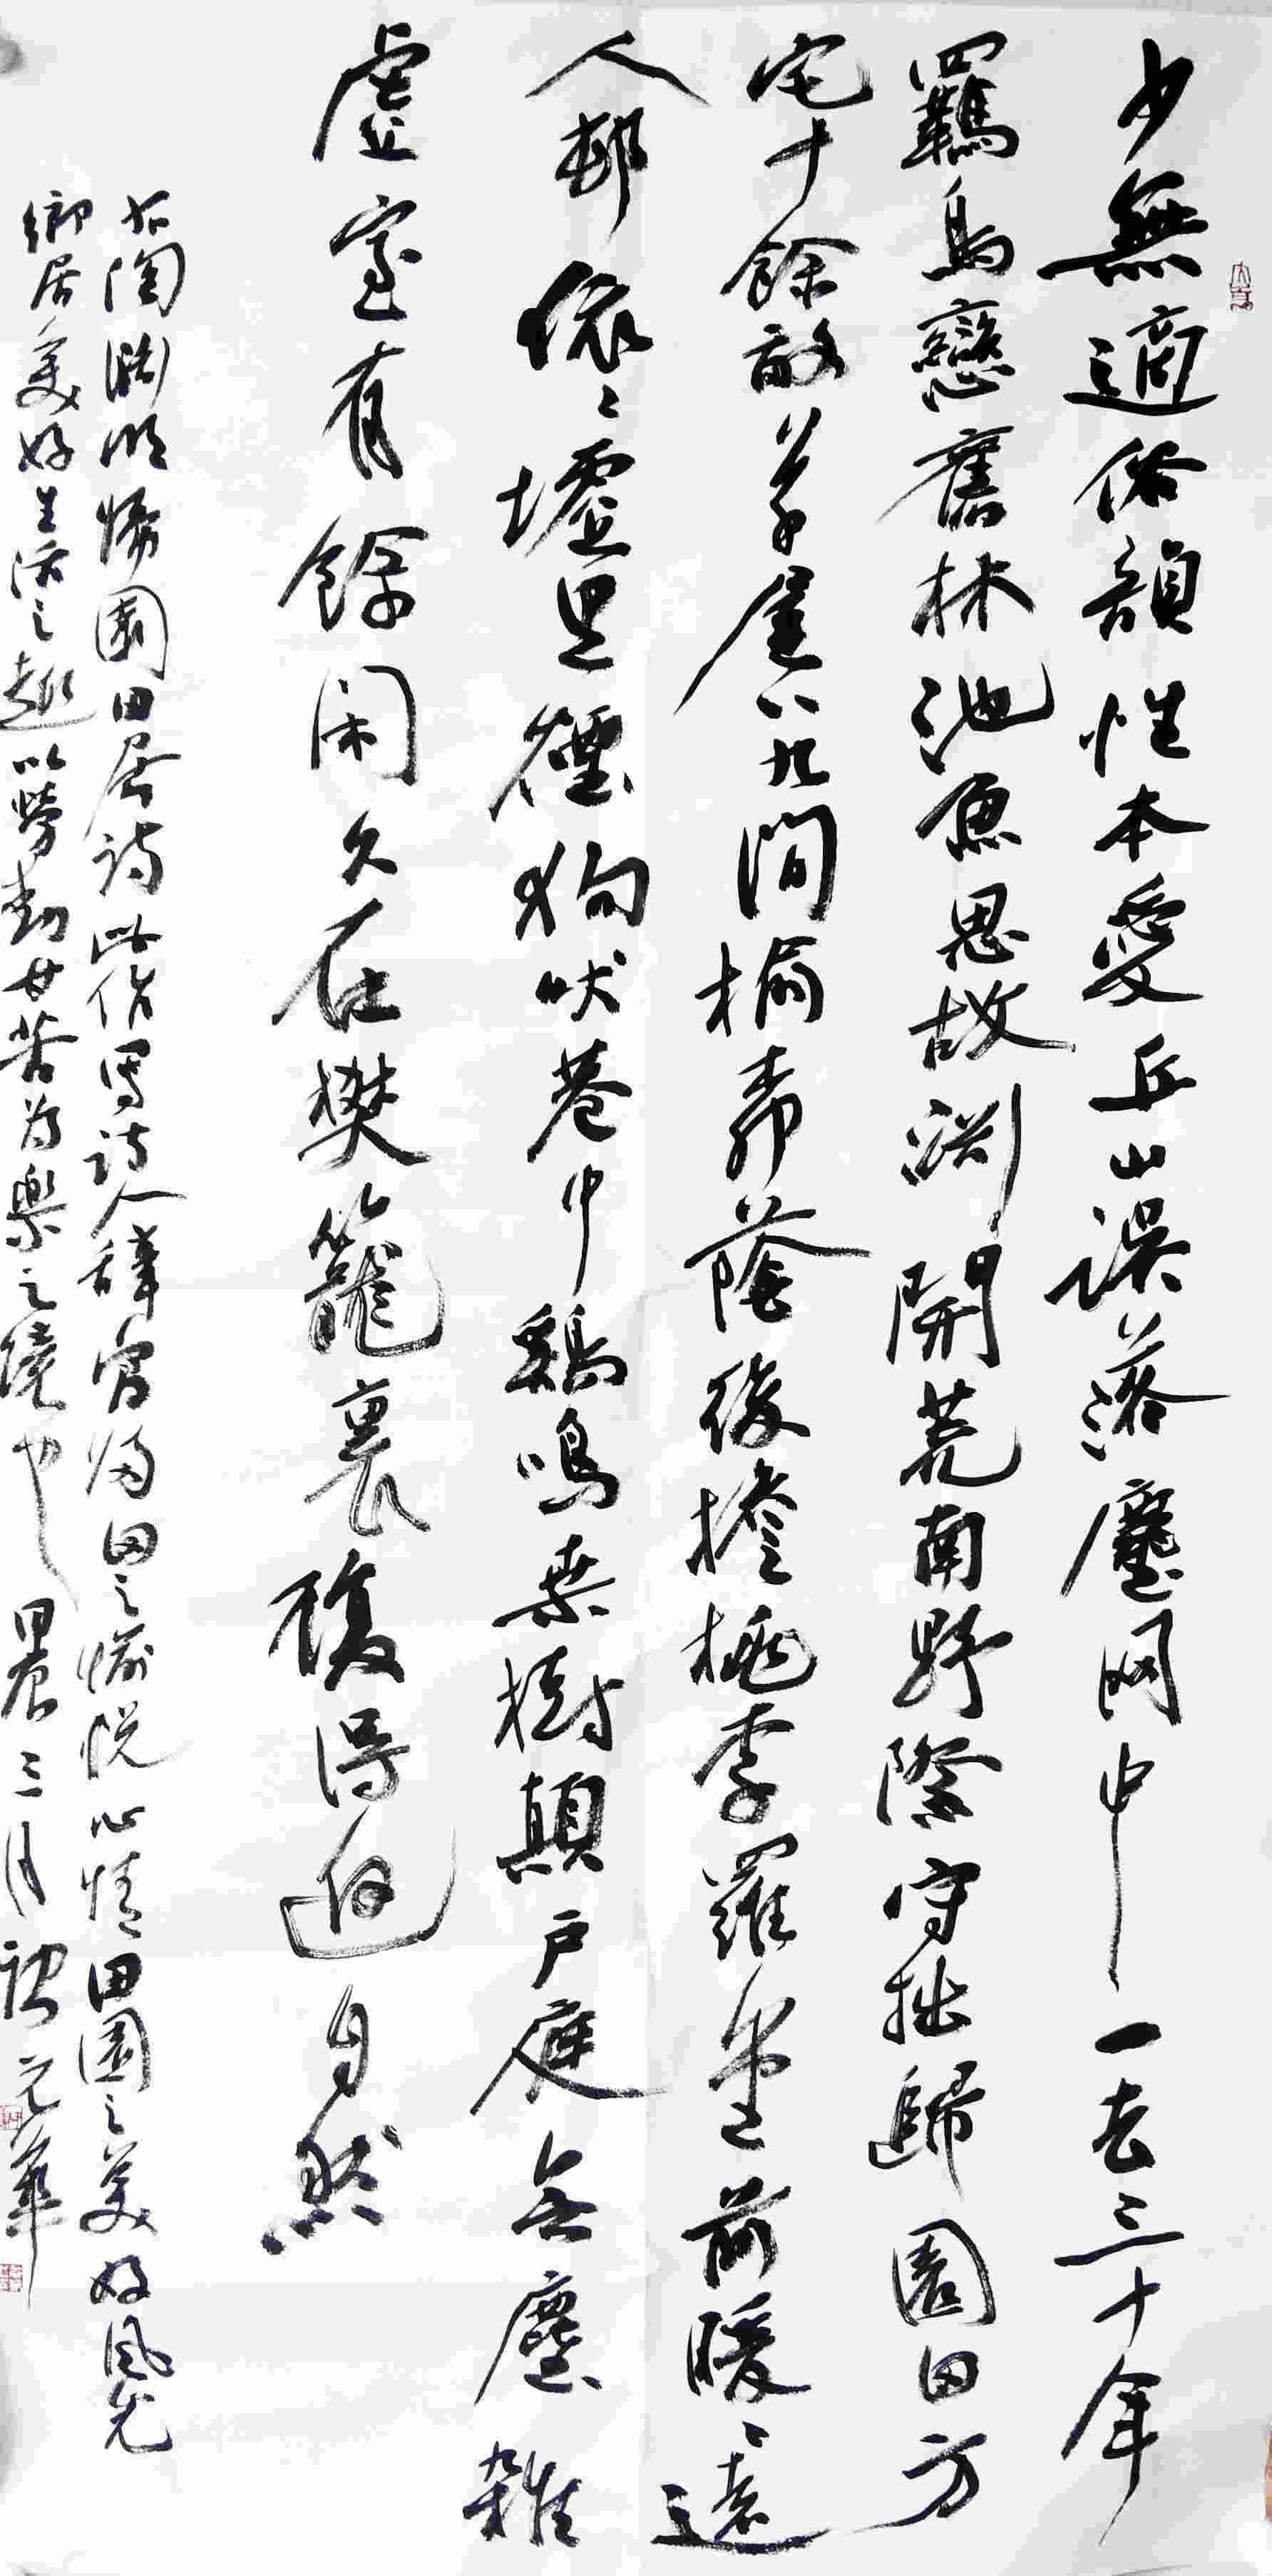 少無適俗韻性本愛丘山误落塵网中一去三十年
羈鳥戀舊林池魚思故渊開荒南野際守拙歸園田方
宅十餘畝草屋八九间榆柳蔭後檐桃李羅堂前暖〻遠
人邨依〻墟里煙狗吠巷中鷄鳴桑樹顛户庭無塵雜
虚室有餘闲久在樊籠裏復得返自然
右陶渊明歸園田居詩此作寫詩人辞官归田之愉悦心情田園之美好風光
鄉居美好生活之趣以勞動甘苦为樂之境也 三月 元華